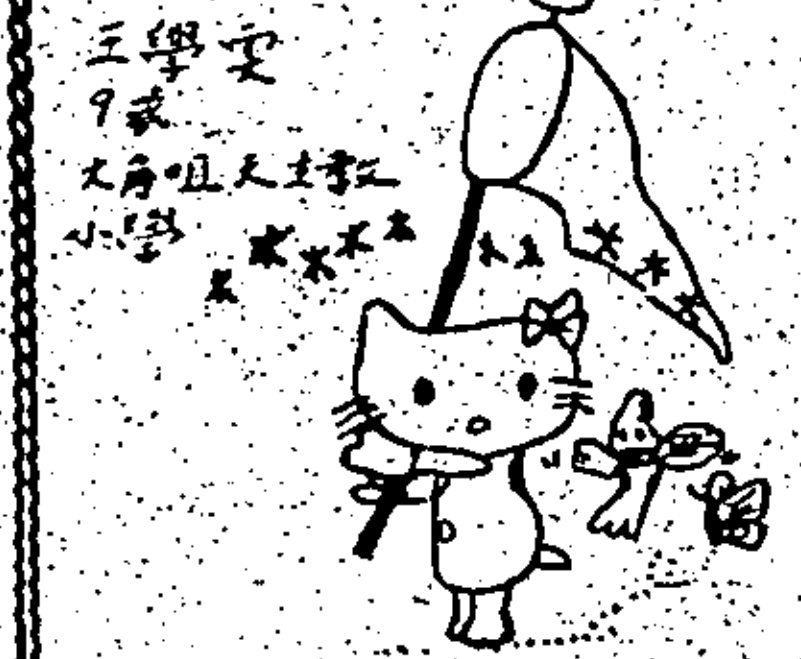 王學雯
9歲
大角咀天主教
小學